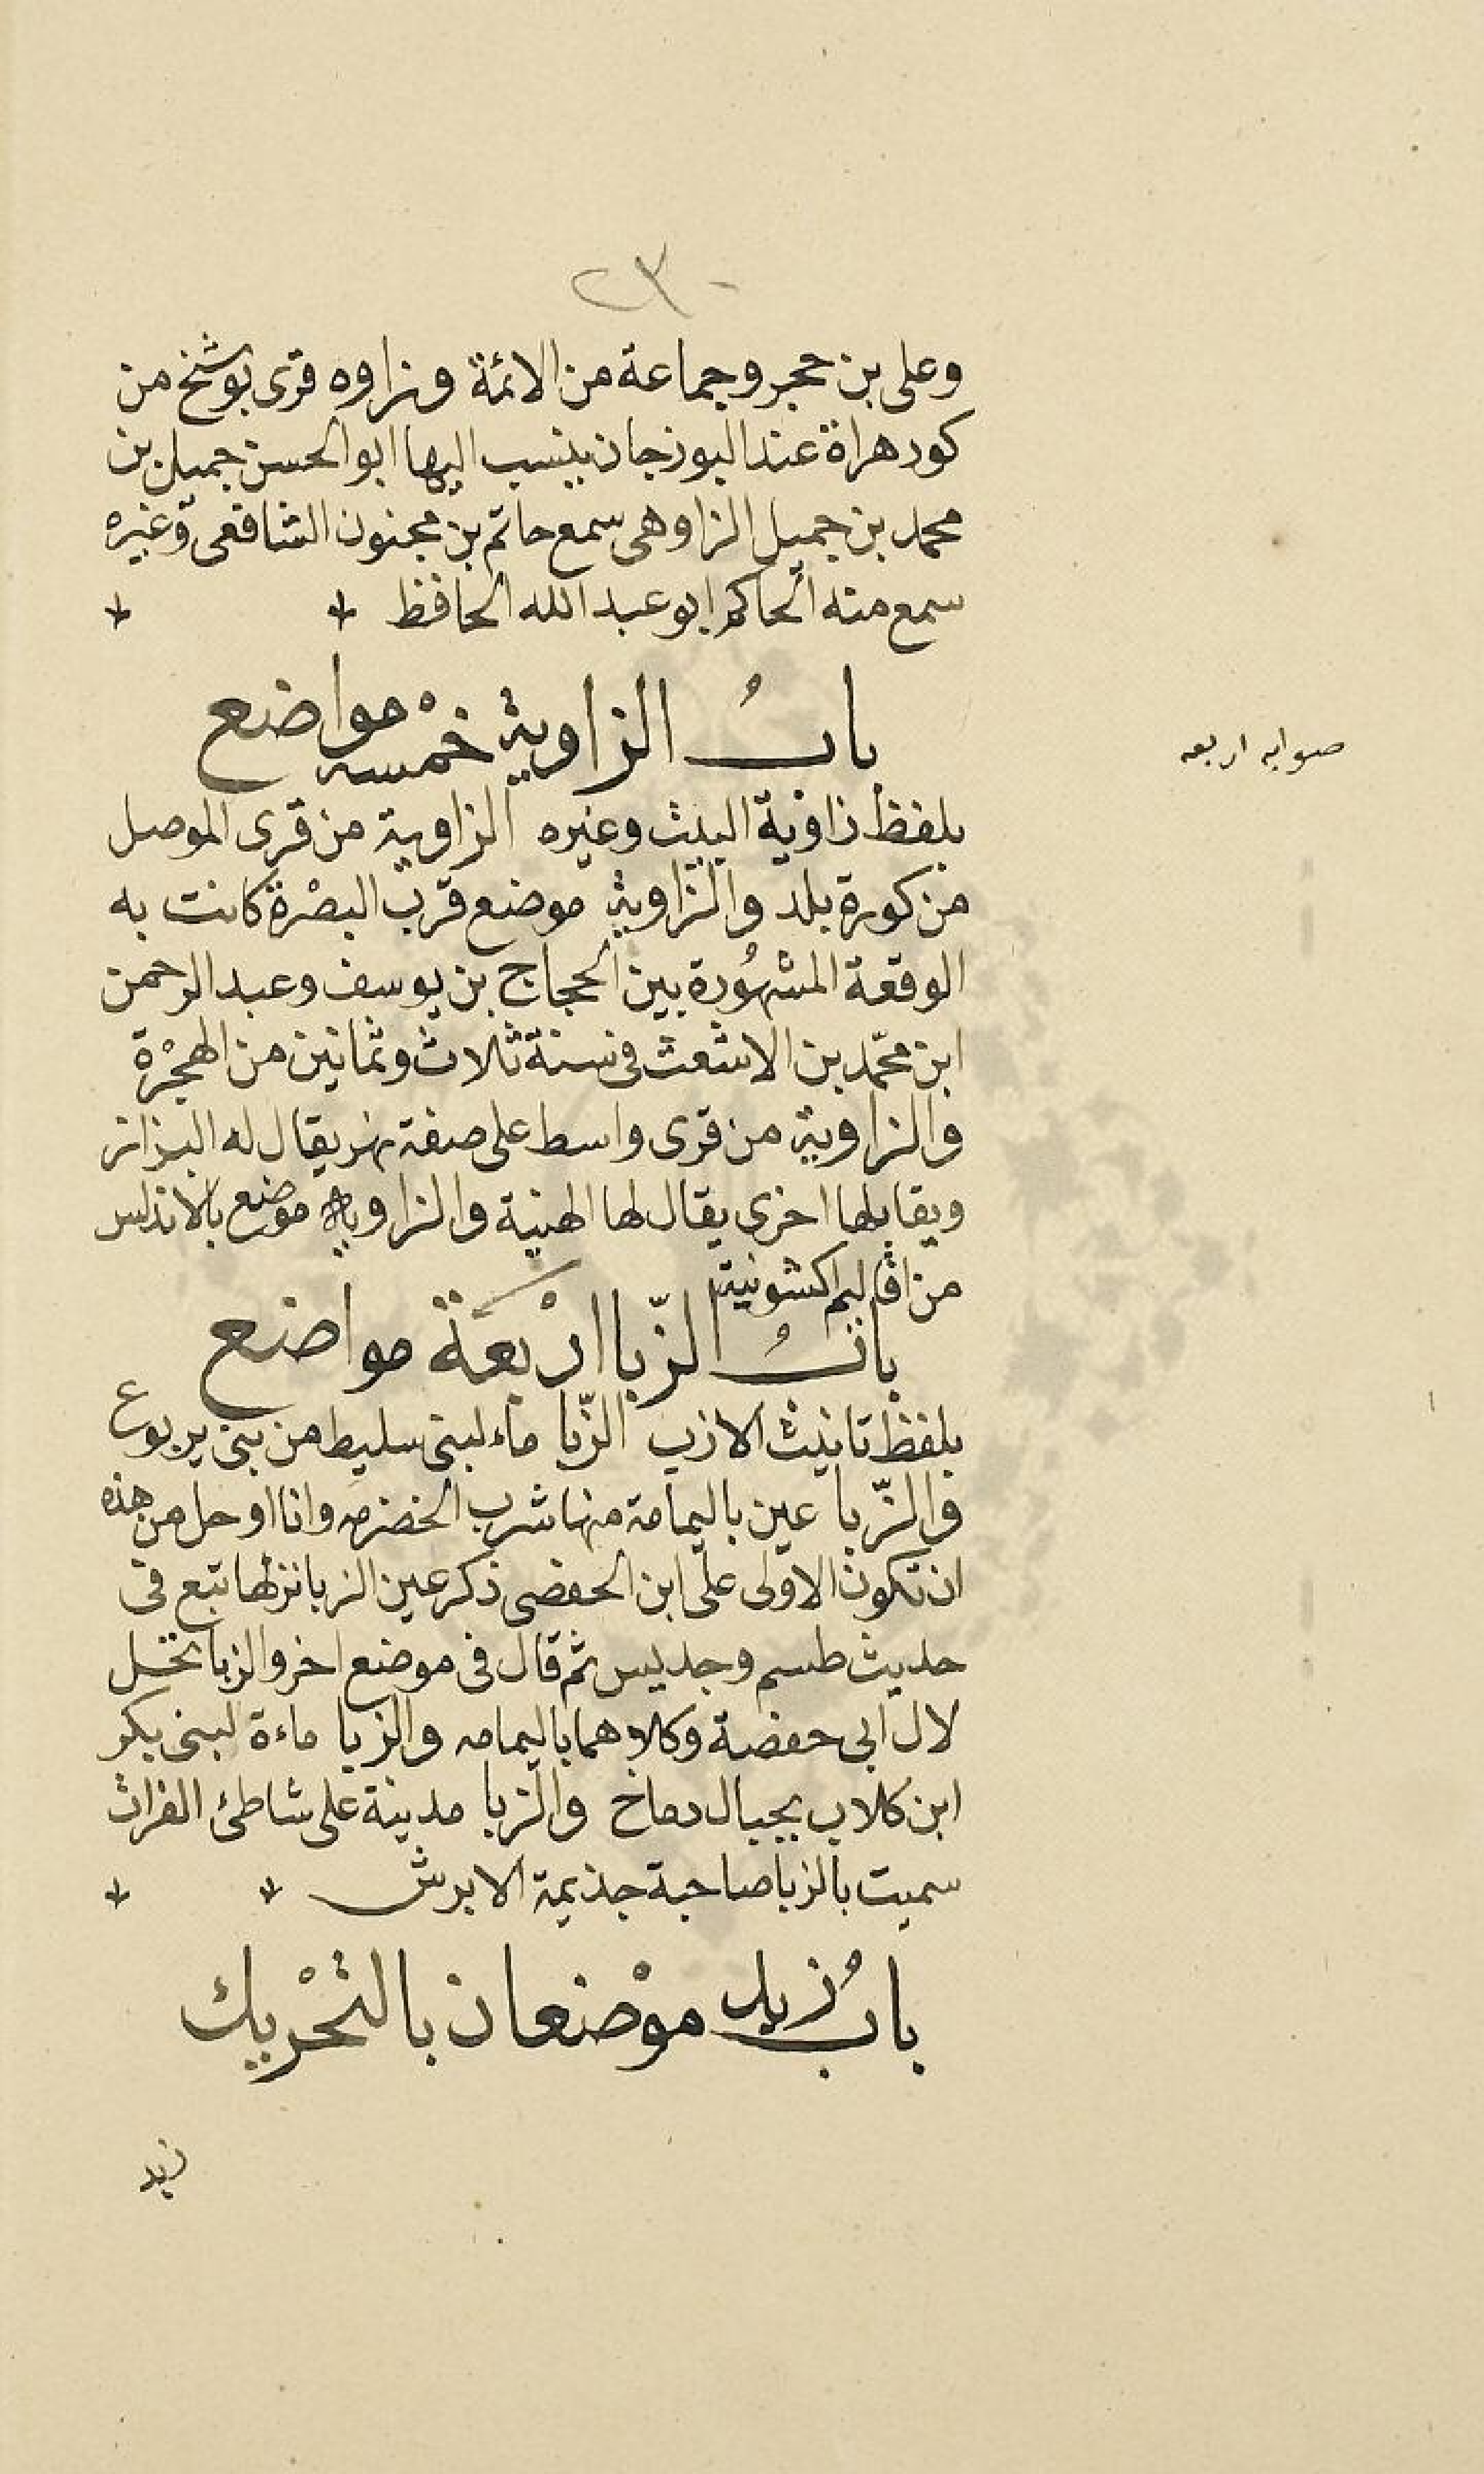 ٢٣٠
وعلى بن حجر وجماعة من الائمة وزاوه قرى بوشنخ من
كور هراة عند البوزجان ينسب اليها ابو الحسن جميل بن
محمد بن جميل الزاوهى سمع حاتم بن مجنون الشافعى وغيره
سمع منه الحاكم ابو عبد الله الحافظ
باب الزاوية خمسه مواضع
صوابه اربعه
بلفظ زاوية البيت وغيره الزاوية من قرى الموصل
من كورة بلد والزاوية موضع قرب البصرة كانت به
الوقعة المشهورة بين الحجاج بن يوسف وعبد الرحمن
ابن محمد بن الاشعث فى سنة ثلاث وثمانين من الهجرة
والزاوية من قرى واسط على صفة نهر يقال له البزاز
ويقابلها اخرى يقال لها الهنية والزاوية موضع بالاندلس
من اقاليم اكشونية
باب الزبا اربعة مواضع
بلفظ تانيث الازب الزبا ماء لبنى سليط من بنى يربوع
والزبا عين باليمامة منها شرب الخضرمه وانا اوحل من هذه
ان تكون الاولى على ابن الحفصى ذكر عين الزبا نزلها تبع فى
حديث طسم وجديس ثم قال فى موضع اخر والزبا نخل
لال ابى حفصة وكلاهما باليمامه والزبا ماءة لبنى بكر
ابن كلاب بجبال دماخ والزبا مدينة على شاطئ الفرات
سميت بالزبا صاحبة جذيمة الابرش
باب زيد موضعان بالتحريك
زيد